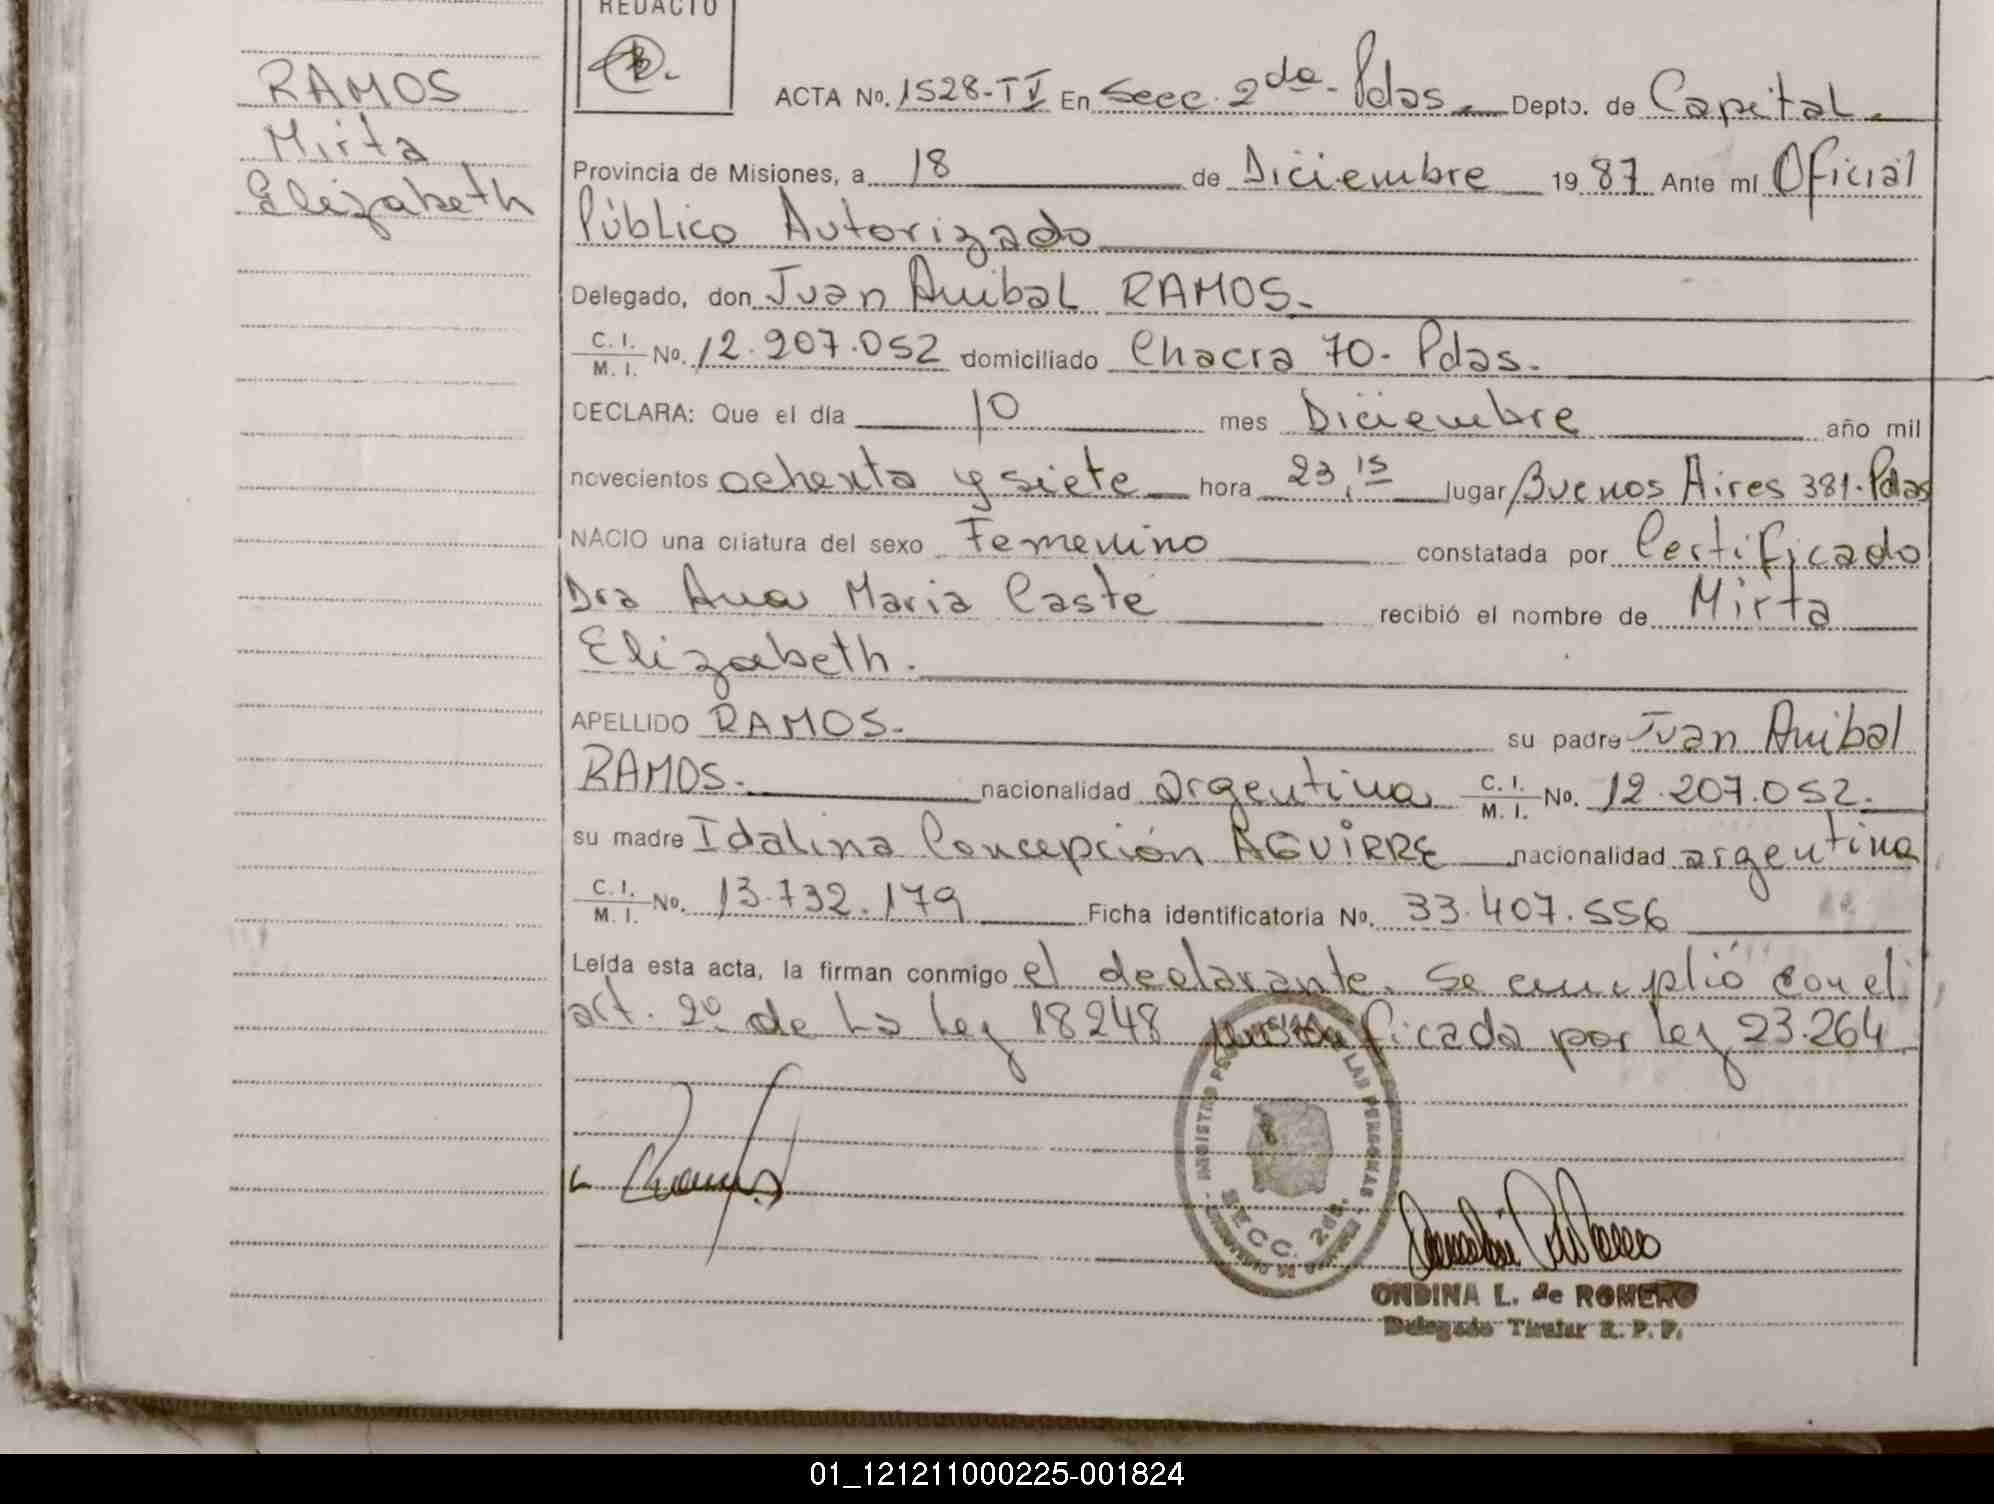 REDACTO
RAMOS
Mirta
Elizabeth
ACTA No. 1528-TV En Secc. 2da - Pdas. Depto. de Capital.
Provincia de Misiones, a 18 de Diciembre 19 87 Ante mí Oficial
Público Autorizado
Delegado, don Juan Anibal RAMOS.
C. I. / M. I. No. 12.207.052 domiciliado Chacra 70 - Pdas.
DECLARA: Que el día 10 mes Diciembre año mil
novecientos ochenta y siete hora 23,15 lugar Buenos Aires 381. Pdas
NACIO una criatura del sexo Femenino constatada por Certificado
Dra Ana Maria Casté recibió el nombre de Mirta
Elizabeth.
APELLIDO RAMOS. su padre Juan Anibal
RAMOS. nacionalidad argentina C. I. / M. I. No. 12.207.052.
su madre Idalina Concepción AGUIRRE nacionalidad argentina
C. I. / M. I. No. 13.732.179 Ficha identificatoria No. 33.407.556
Leída esta acta, la firman conmigo el declarante. Se cumplió con el
art. 2º de la ley 18248 modificada por ley 23.264
LAS PERSONAS
SECC. 2da.
ONDINA L. de ROMERO
Delegado Titular R. P. P.
01_121211000225-001824